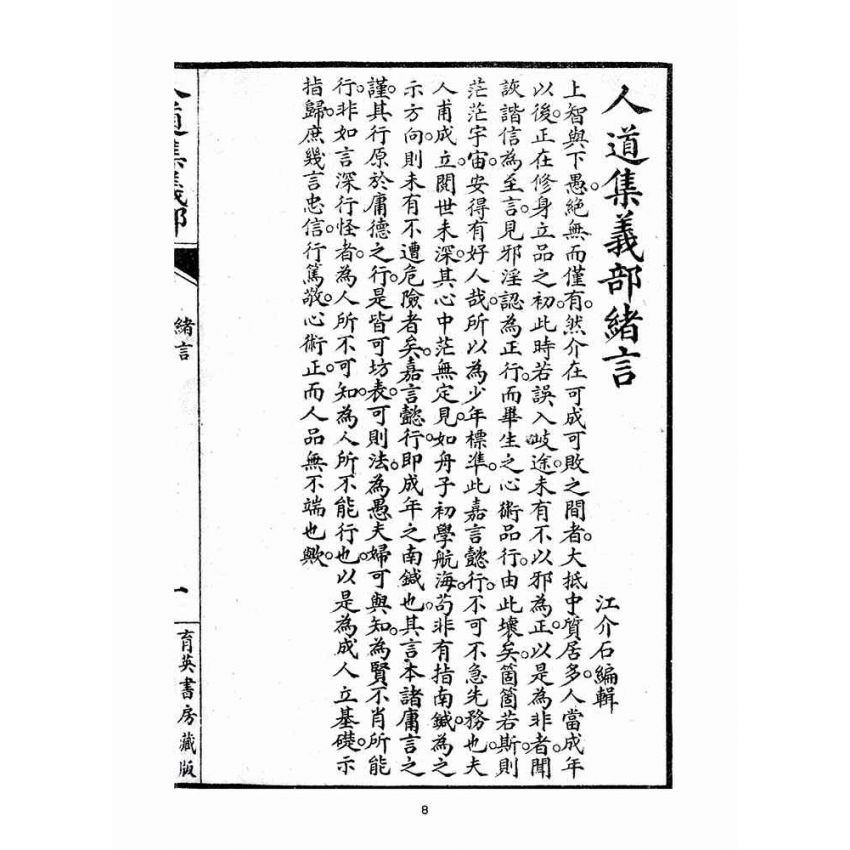 人道集義部緒言
江介石編輯
上智與下愚。絕無而僅有。然介在可成可敗之間者。大抵中質居多。人當成年
以後。正在修身立品之初。此時若誤入歧途。未有不以邪為正。以是為非者。聞
詼諧信為至言。見邪淫認為正行。而畢生之心術品行。由此壞矣。箇箇若斯。則
茫茫宇宙。安得有好人哉。所以為少年標準。此嘉言懿行。不可不急先務也。夫
人甫成立。閱世未深。其心中茫無定見。如舟子初學航海。苟非有指南鍼。為之
示方向。則未有不遭危險者矣。嘉言懿行。即成年之南鍼也。其言本諸庸言之
謹。其行原於庸德之行。是皆可坊表。可則法。為愚夫婦可與知。為賢不肖所能
行。非如言深行怪者。為人所不可知。為人所不能行也。以是為成人立基礎。示
指歸。庶幾言忠信。行篤敬。心術正。而人品無不端也歟。
人道集義部
緒言
一
育英書房藏版
8